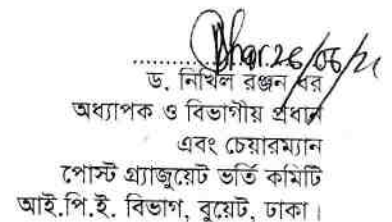 Dhar 26/06/21
ড. নিখিল রঞ্জন ধর
অধ্যাপক ও বিভাগীয় প্রধান
এবং চেয়ারম্যান
পোস্ট গ্র্যাজুয়েট ভর্তি কমিটি
আই.পি.ই. বিভাগ, বুয়েট, ঢাকা।